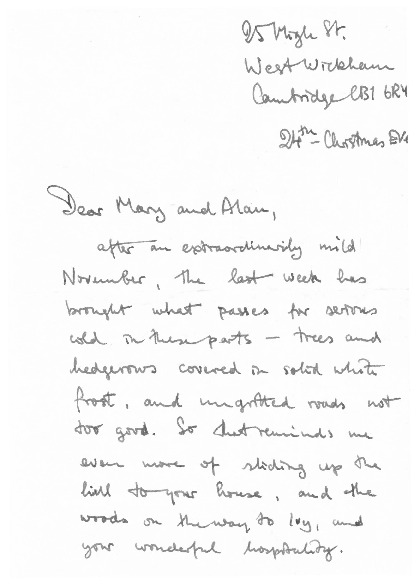 25 High St.
West Wickham
Cambridge CB1 6RY
24th - Christmas Eve
Dear Mary and Alan,
after an extraordinarily mild
November, the last week has
brought what passes for serious
cold in these parts — trees and
hedgerows covered in solid white
frost, and ungritted roads not
too good. So that reminds me
even more of sliding up the
hill to your house, and the
woods on the way to Ivy, and
your wonderful hospitality.